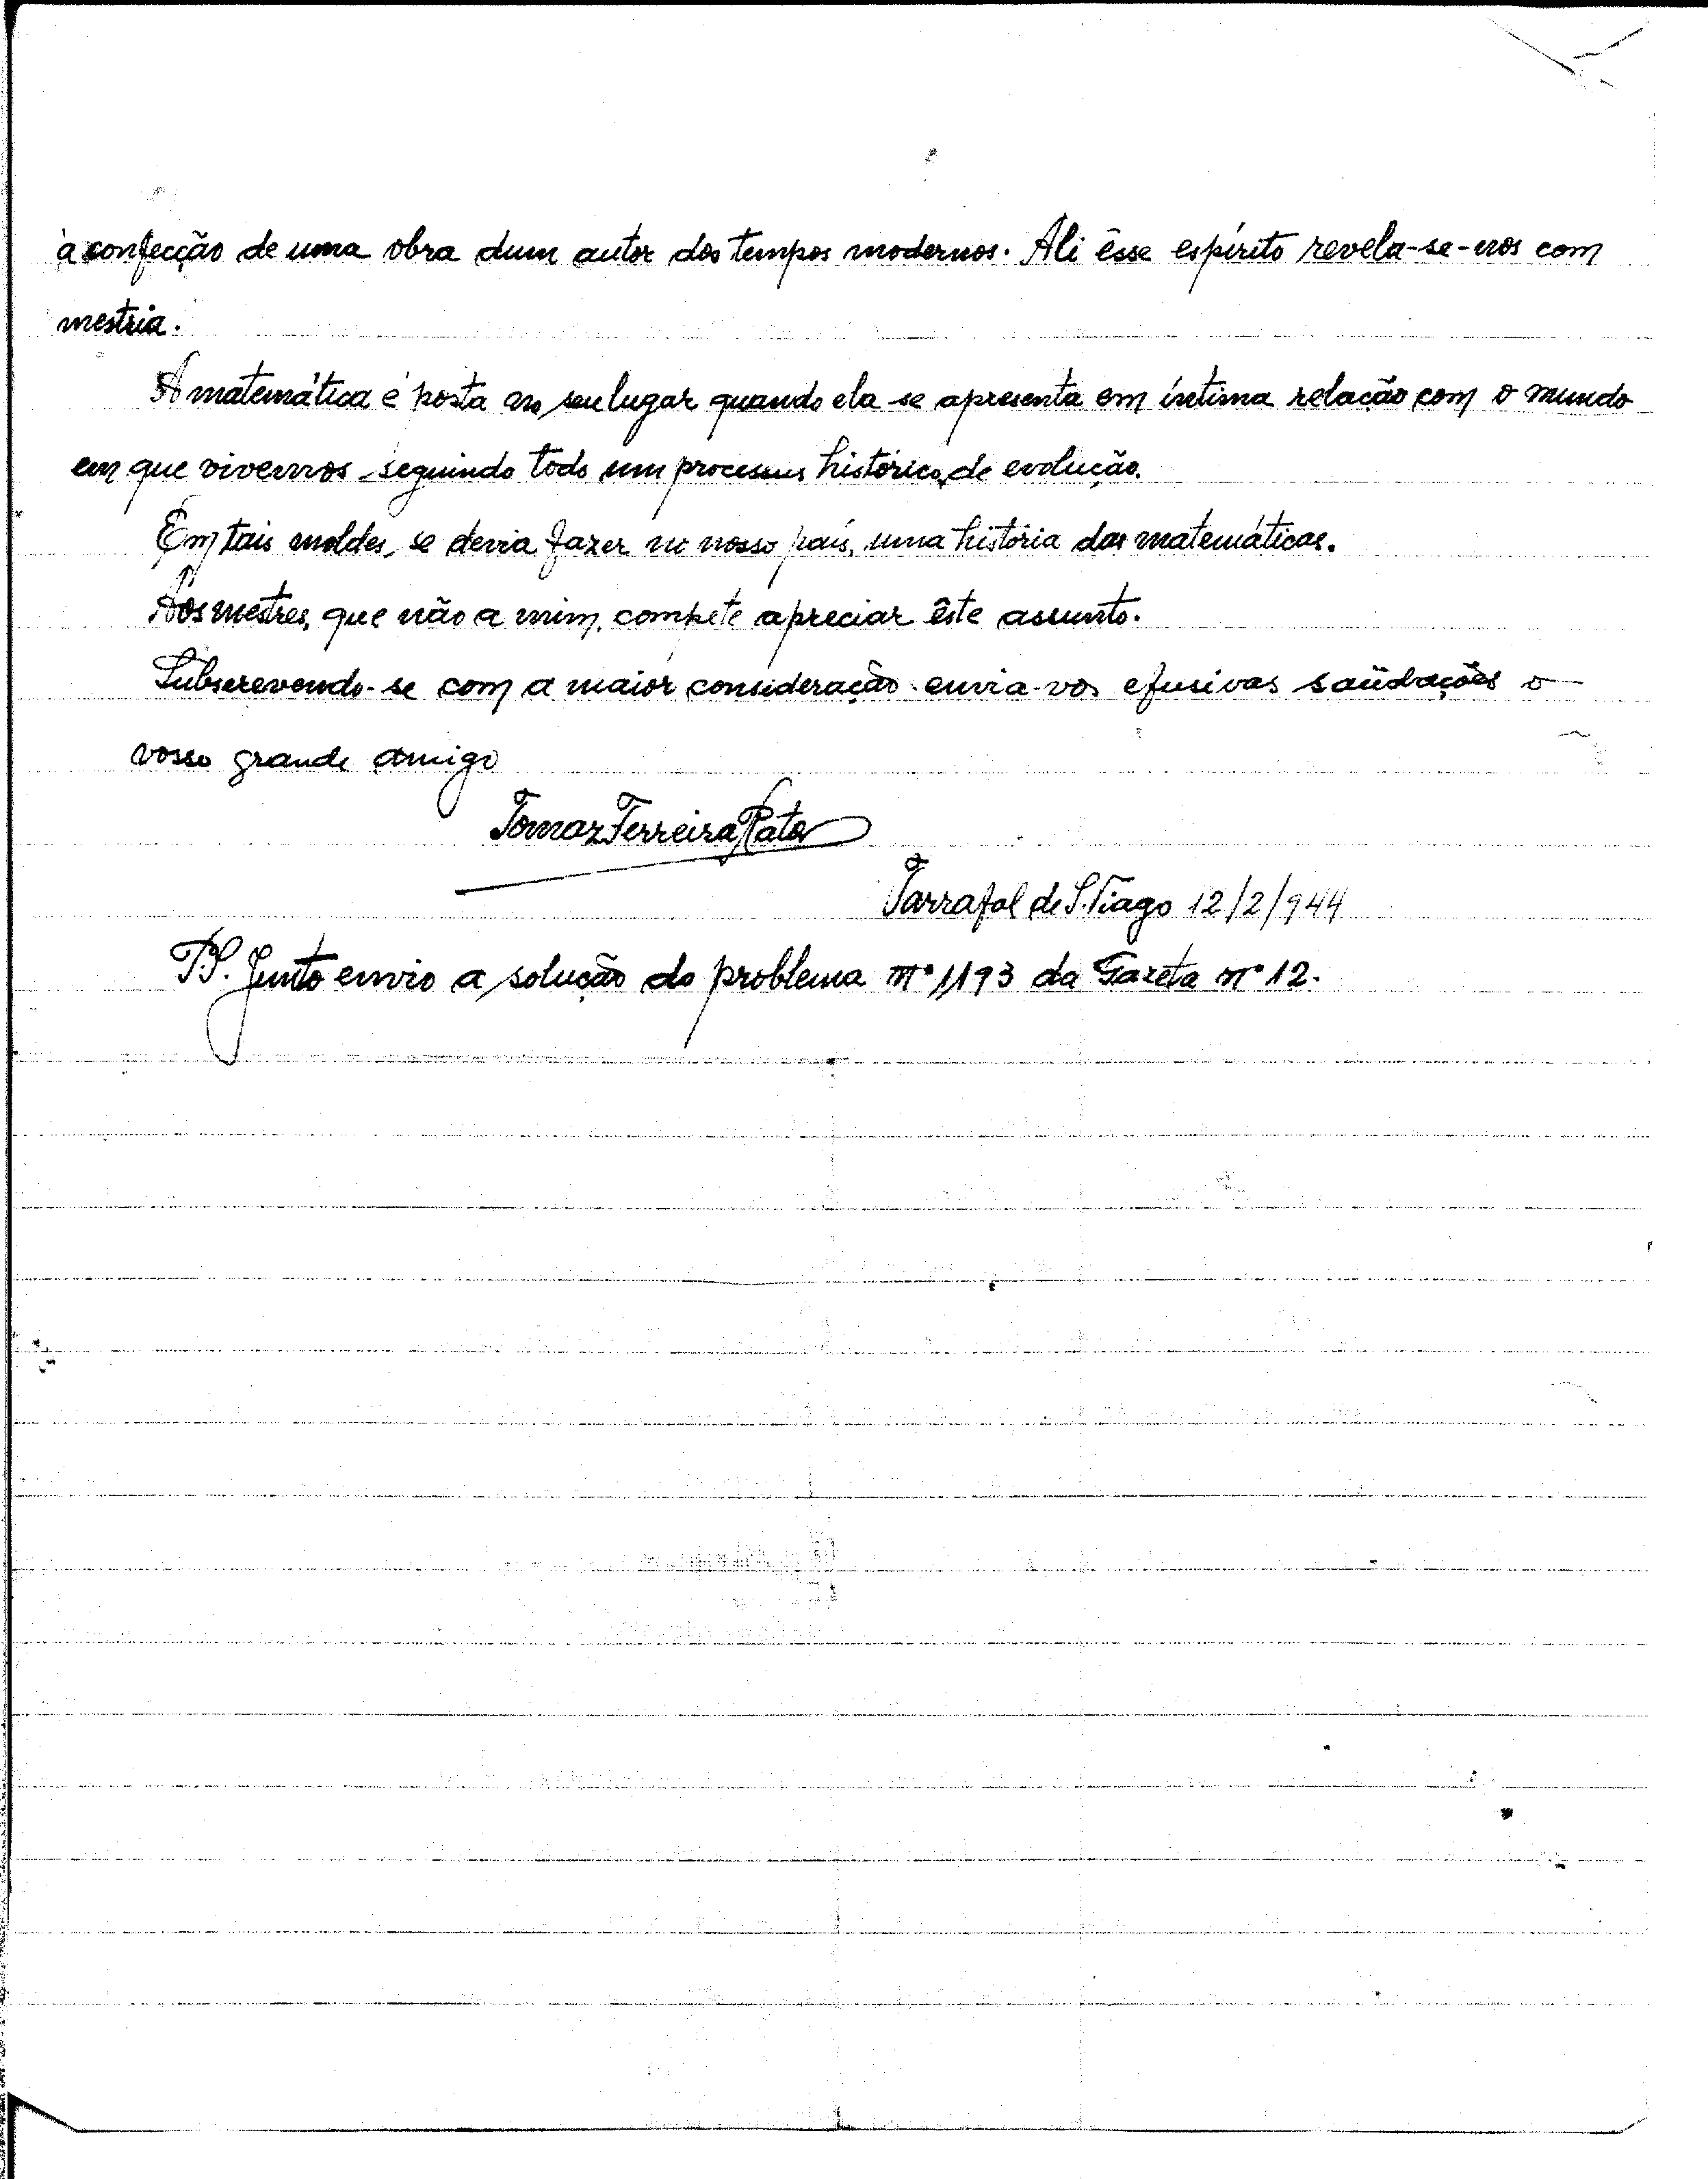 à confecção de uma obra dum autor dos tempos modernos. Ali êsse espírito revela-se-nos com
mestria.
A matemática é posta no seu lugar quando ela se apresenta em íntima relação com o mundo
em que vivemos seguindo todo um processus histórico de evolução.
Em tais moldes, se devia fazer no nosso país, uma história das matemáticas.
Aos mestres, que não a mim, compete apreciar êste assunto.
Subscrevendo-se com a maior consideração envia-vos efusivas saüdações o
vosso grande amigo
Tomaz Ferreira Rato
Tarrafal de S. Tiago 12/2/944
P.S. Junto envio a solução do problema nº 1193 da Gazeta nº 12.